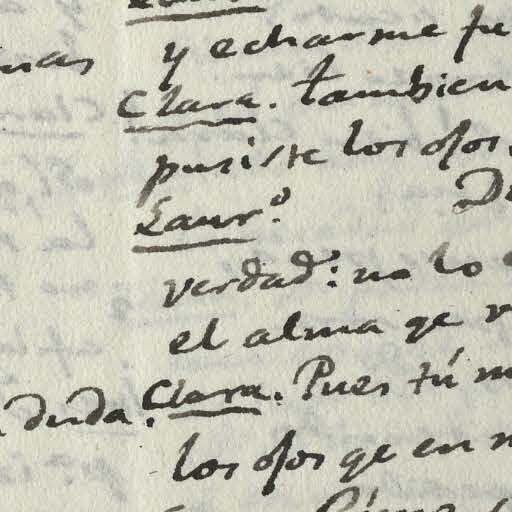 y echarme fu
Clara. tambien
pusiste los ojos.
Laur.º
verdad: no lo
el alma qe
a duda. Clara. Pues tú m
los ojos qe en